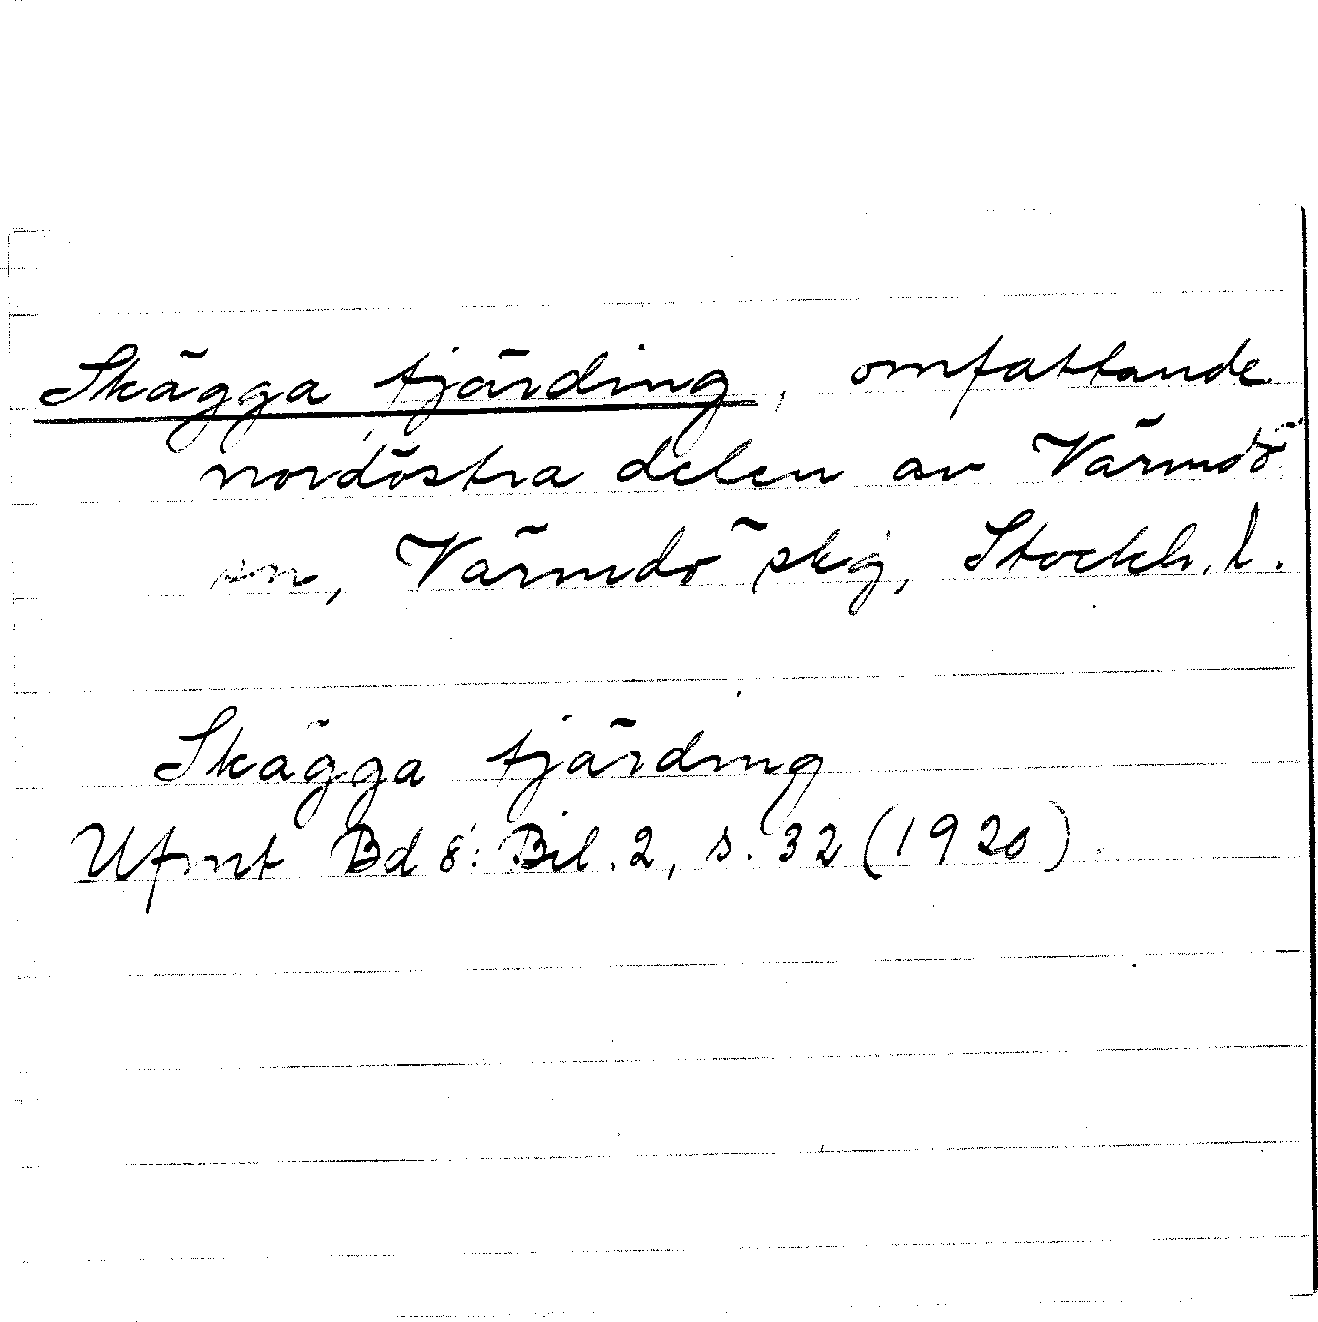 Skägga fjärding, omfattande
nordöstra delen av Värmdö
sn, Värmdö skg, Stockh. l.
Skägga fjärding
Ufmt Bd 8: Bil. 2, s. 32 (1920).